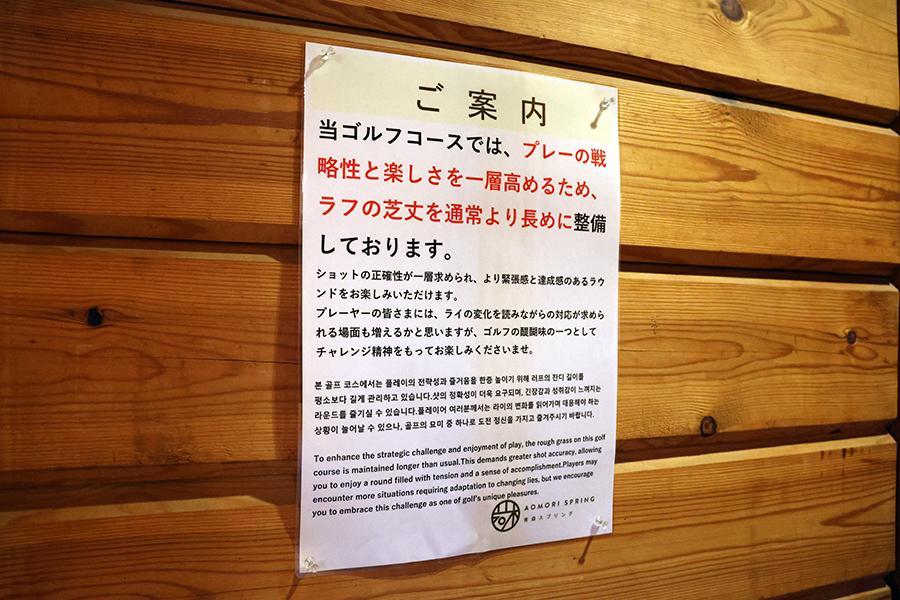 ご案内
当ゴルフコースでは、プレーの戦
略性と楽しさを一層高めるため、
ラフの芝丈を通常より長めに整備
しております。
ショットの正確性が一層求められ、より緊張感と達成感のあるラウ
ンドをお楽しみいただけます。
プレーヤーの皆さまには、ライの変化を読みながらの対応が求めら
れる場面も増えるかと思いますが、ゴルフの醍醐味の一つとして
チャレンジ精神をもってお楽しみくださいませ。
본 골프 코스에서는 플레이의 전략성과 즐거움을 한층 높이기 위해 러프의 잔디 길이를
평소보다 길게 관리하고 있습니다.샷의 정확성이 더욱 요구되며, 긴장감과 성취감이 느껴지는
라운드를 즐기실 수 있습니다.플레이어 여러분께서는 라이의 변화를 읽어가며 대응해야 하는
상황이 늘어날 수 있으나, 골프의 묘미 중 하나로 도전 정신을 가지고 즐겨주시기 바랍니다.
To enhance the strategic challenge and enjoyment of play, the rough grass on this golf
course is maintained longer than usual.This demands greater shot accuracy, allowing
you to enjoy a round filled with tension and a sense of accomplishment.Players may
encounter more situations requiring adaptation to changing lies, but we encourage
you to embrace this challenge as one of golf's unique pleasures.
AOMORI SPRING
青森スプリング